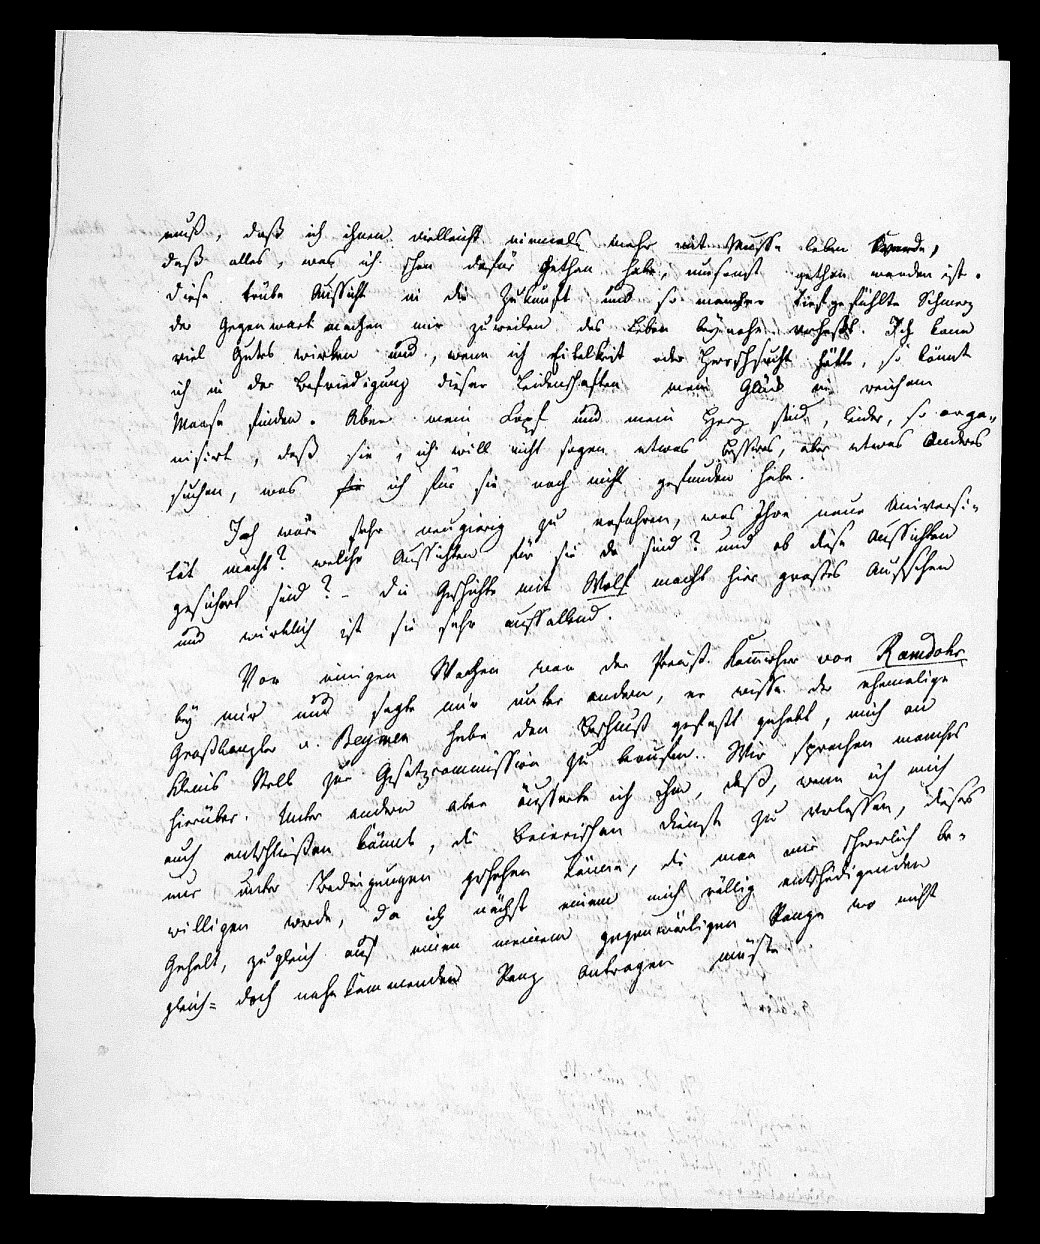 muß, daß ich ihnen vielleicht niemals mehr mit Musse leben werde,
daß alles, was ich schon dafür gethan habe, umsonst gethan worden ist.
Diese trübe Aussicht in die Zukunft und so mancher tiefgefühlte Schmerz
der Gegenwart machen mir zuweilen das Leben beynahe verhaßt. Ich kann
viel Gutes wirken und, wenn ich Eitelkeit oder Herrschsucht hätte, so könnt
ich in der Befriedigung dieser Leidenschaften mein Glück in reichem
Maase finden. Aber mein Kopf und mein Herz sind, leider, so orga-
nisirt, daß sie, ich will nicht sagen etwas bessres, aber etwas Anders
suchen, was sie ich für sie noch nicht gefunden habe.
Ich wäre sehr neugierig zu erfahren, was Ihre neue Universi-
tät macht? welche Aussichten für sie da sind? und ob diese Aussichten
gesichert sind? - Die Geschichte mit Wolf macht hier großes Aufsehen
und wirklich ist sie sehr auffallend.
Vor einigen Wochen war der Preuß. Kammerherr von Ramdohr
bey mir und sagte mir unter andern, er wisse der ehemalige
Großkanzler v. Beymen habe den Beschluß gefaßt gehabt, mich an
Kleins Stelle zur Gesetzcommission zu berufen. Wir sprachen manches
hierüber. Unter andern aber äusserte ich ihm, daß, wenn ich mich
auch entschließen könnte, die Baierischen Dienste zu verlassen, dieses
nur unter Bedingungen geschehen könne, die man mir schwerlich be-
willigen werde, da ich nächst einem mich völlig entschädigenden
Gehalt, zugleich auf einen meinem gegenwärtigen Range wo nicht
gleich- doch nahe kommenden Rang antragen müßte